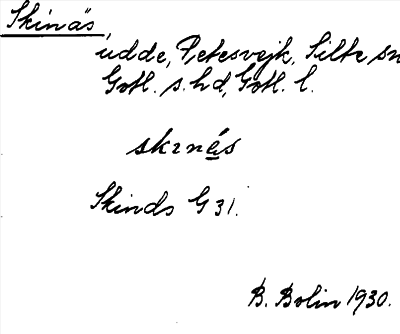 Skinäs,
udde, Petesvejk, Silte sn
Gotl. s. hd, Gotl. l.
skɪnás
Skinds G 31.
B. Bolin 1930.